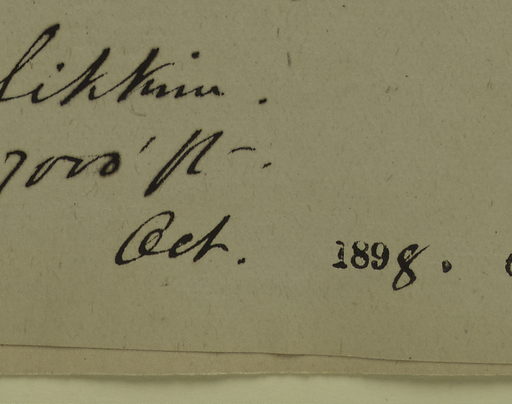 Sikkim.
7000' ft.
Oct. 1898.